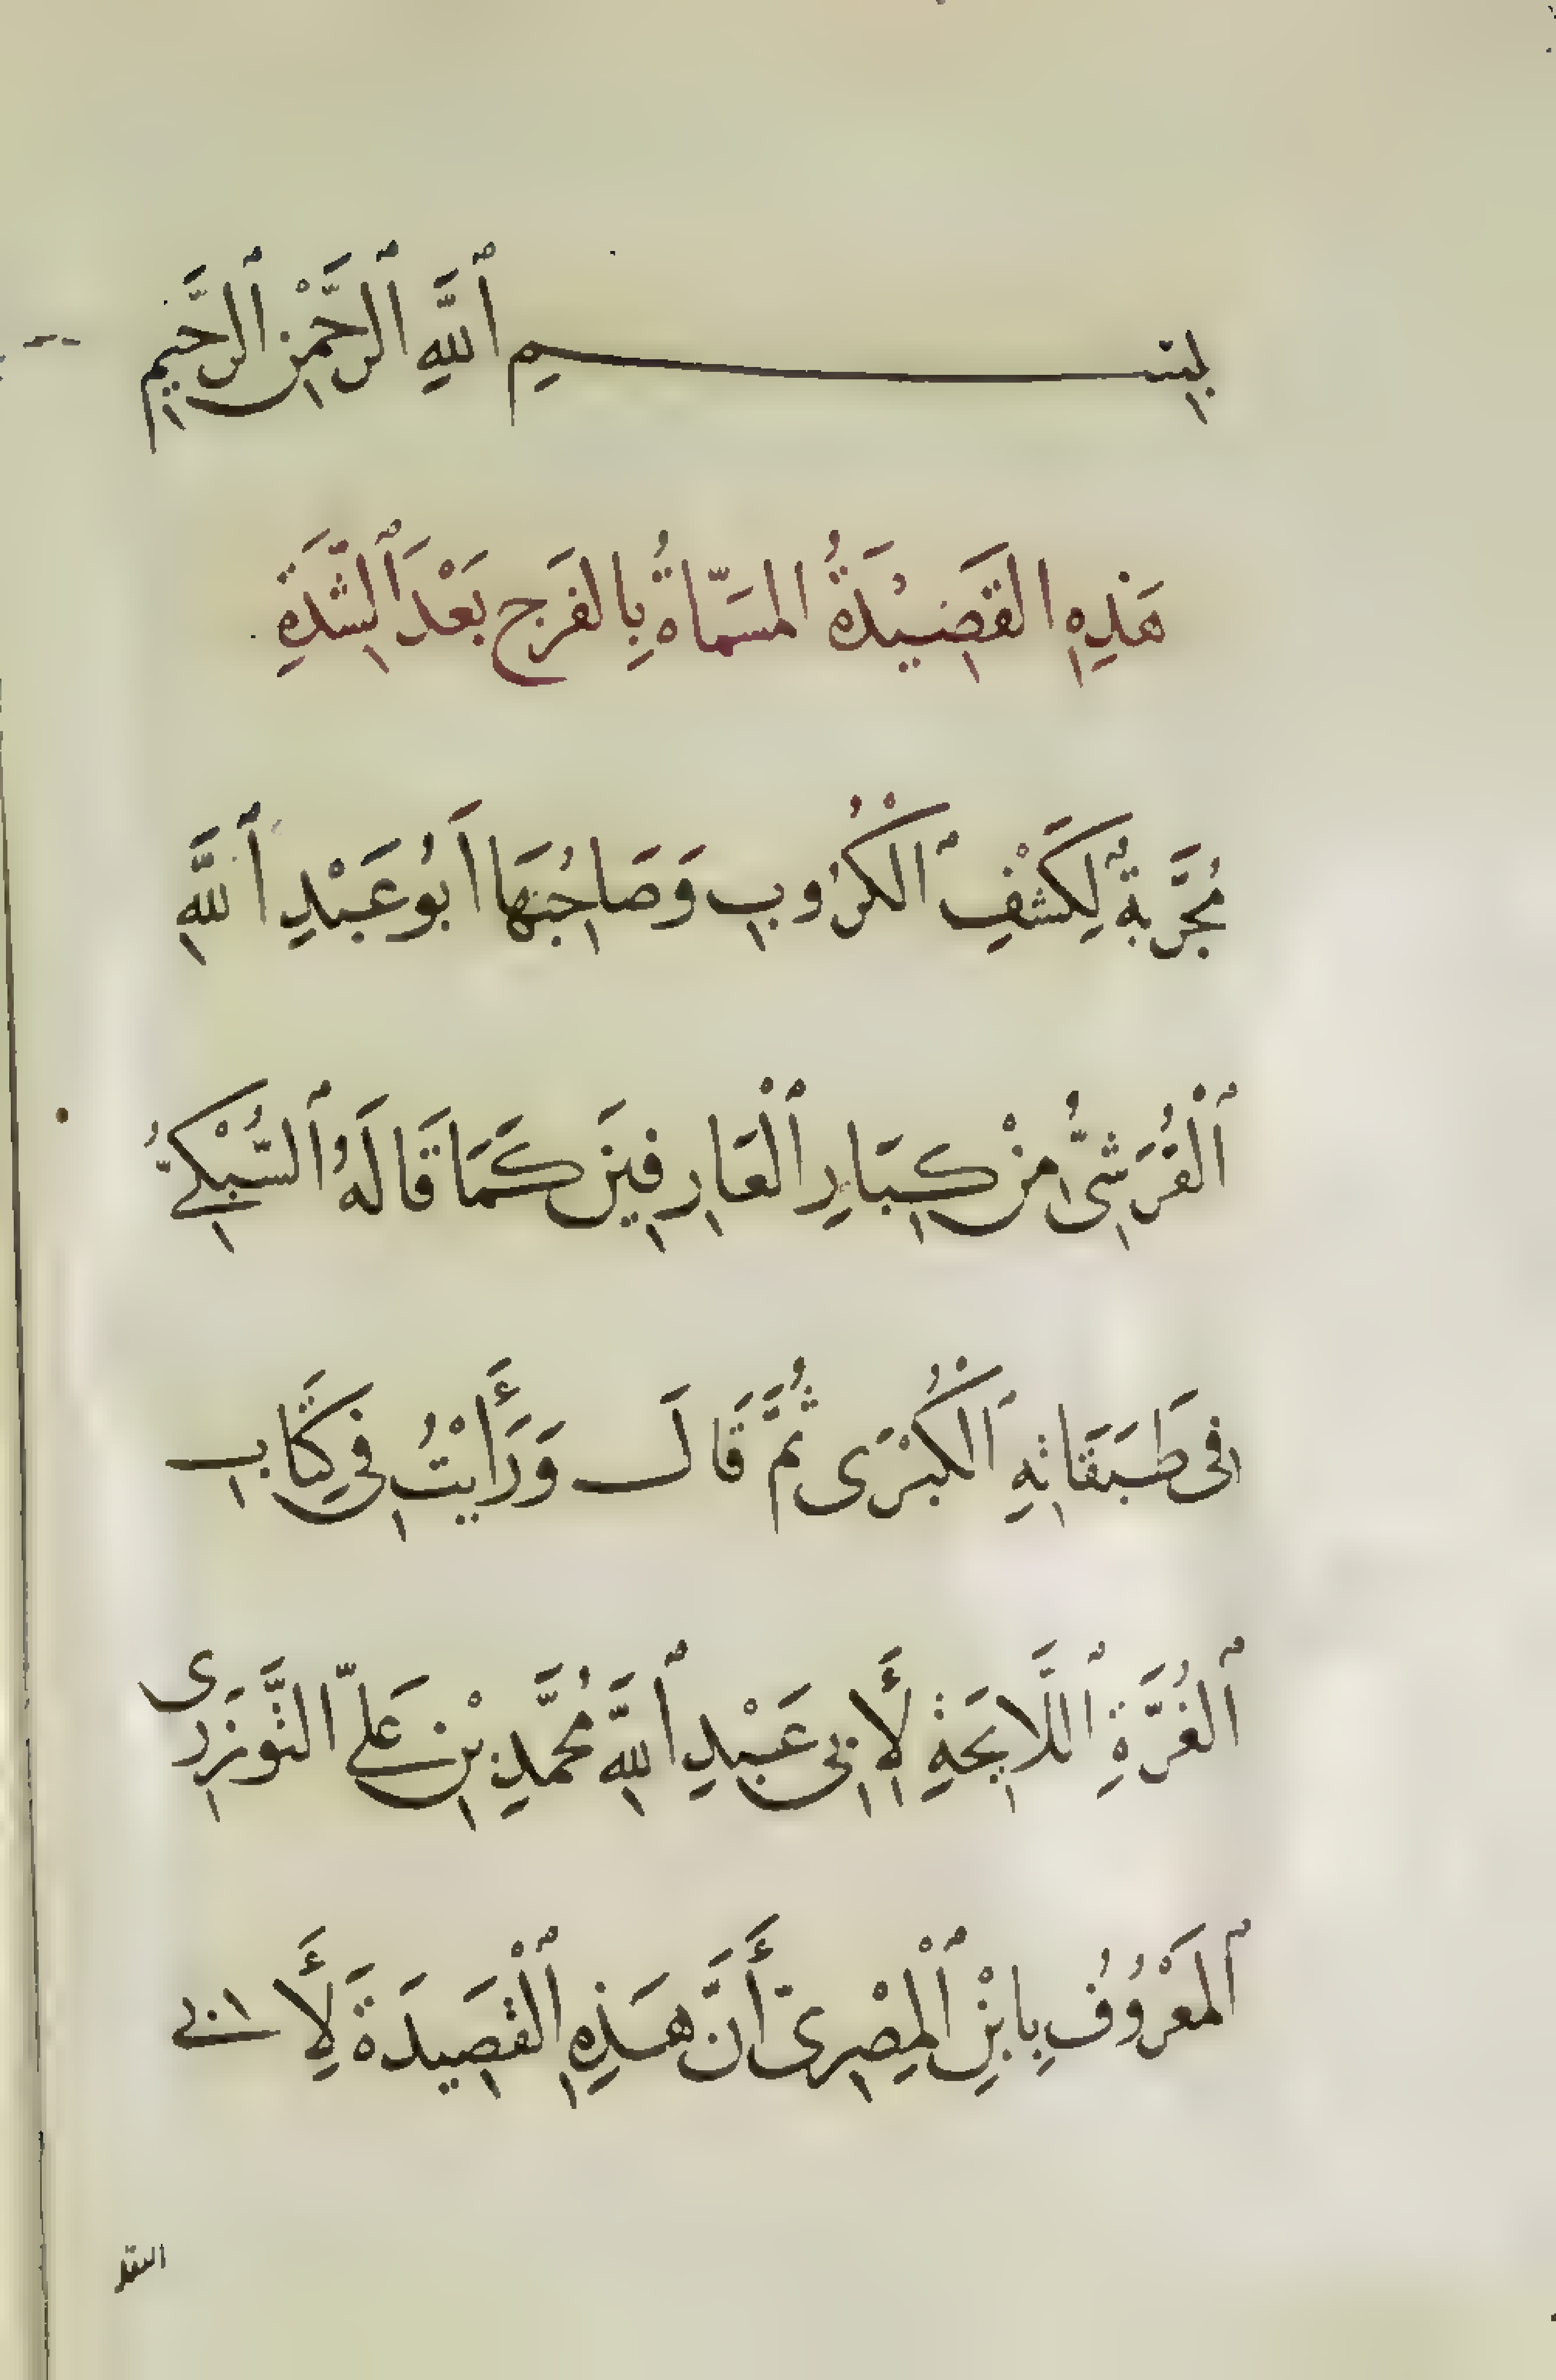 بِسْمِ ٱللَّهِ ٱلرَّحْمٰنِ ٱلرَّحِيمِ
هَذِهِ القَصِيْدَةُ المسَمّاةُ بِالفَرَجِ بَعْدَ ٱلشّدَةِ
مُجَرَّبَةٌ لِكَشْفِ ٱلْكُرُوبِ وَصَاحِبُهَا اَبُو عَبْدِ ٱللَّهِ
ٱلْقُرَشِىُّ مِنْ كِبَارِ ٱلْعَارِفِينَ كَمَا قَالَهُ ٱلسُّبْكِىُّ
فِى طَبَقَاتِهِ ٱلْكُبْرَى ثُمَّ قَالَ وَرَأَيْتُ فِى كِتَابِ
ٱلْغُرَّةِ ٱللَّايِحَةِ لِأَبِى عَبْدِ ٱللَّهِ مُحَمَّدِ بْنِ عَلِىّ التَّوْزَرِى
ٱلْمَعْرُوُفِ بِابْنِ ٱلْمِصْرِىّ أَنَّ هَذِهِ ٱلْقَصِيدَةَ لِأَبِى